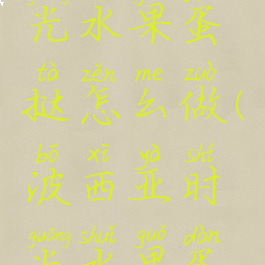 光水果蛋
tà zěn me zuò
挞怎么做(
bō xī yà shí
波西亚时
guāng shuǐ guǒ dàn
光水果蛋